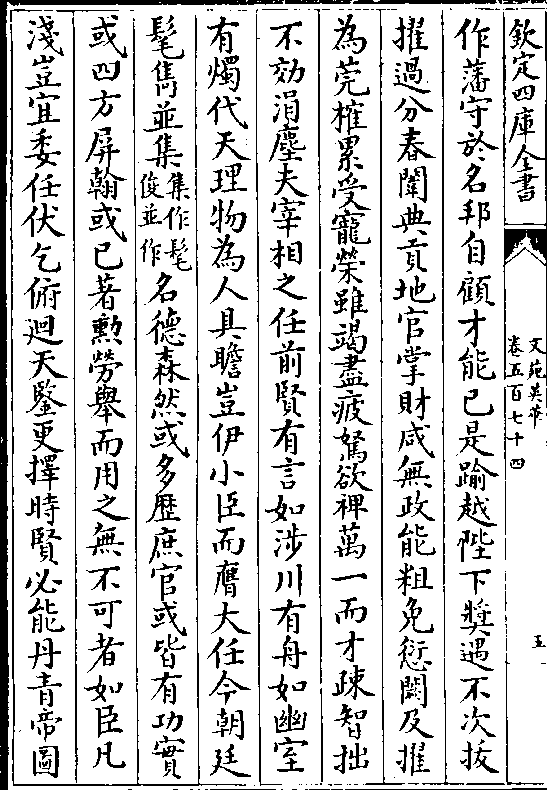 欽定四庫全書
文苑英華
卷五百七十四
五
作藩守於名邦自顧才能已是踰越陛下奬遇不次拔
擢過分春闈典貢地官掌財咸無政能粗免愆闕及擢
為莞榷累受寵榮雖竭盡疲駑欲裨萬一而才疎智拙
不効涓塵夫宰相之任前賢有言如涉川有舟如幽室
有燭代天理物為人具瞻豈伊小臣而膺大任今朝廷
髦雋並集集作髦俊並作名德森然或多歷庶官或皆有功實
或四方屏翰或已著勲勞舉而用之無不可者如臣凡
淺豈宜委任伏乞俯迴天鑒更擇時賢必能丹青帝圖